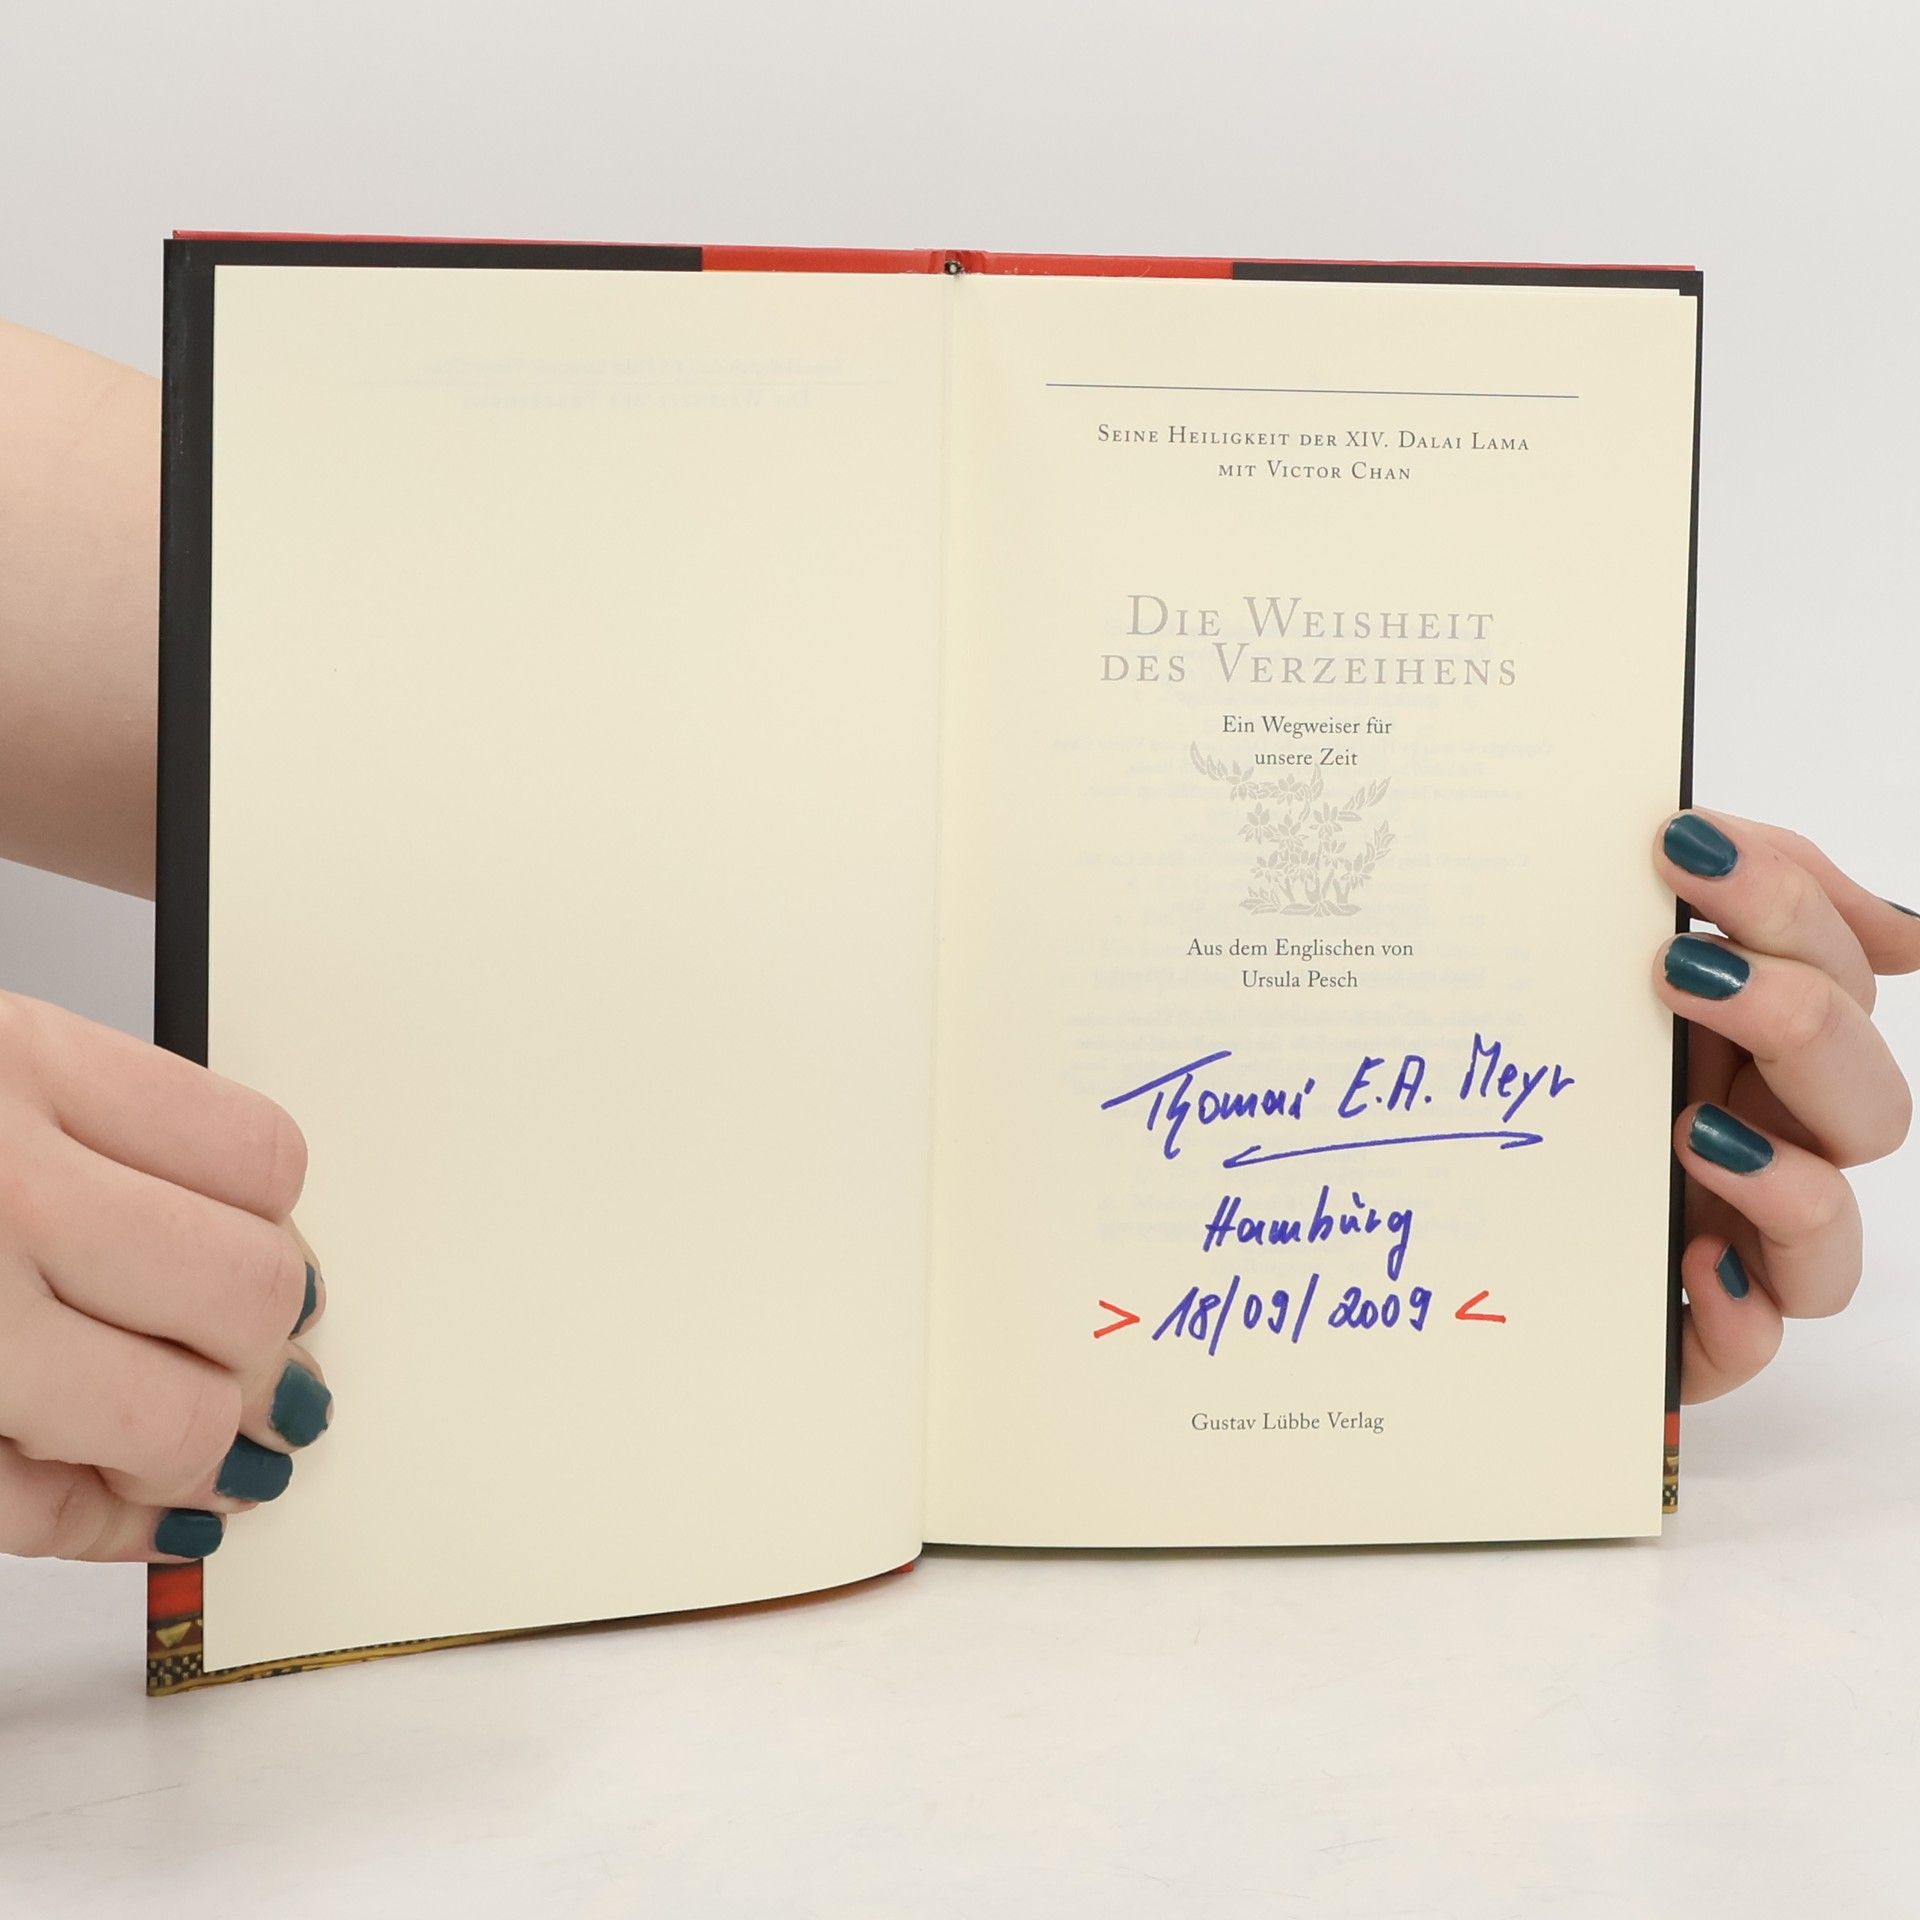 SEINE HEILIGKEIT DER XIV. DALAI LAMA
MIT VICTOR CHAN
DIE WEISHEIT
DES VERZEIHENS
Ein Wegweiser für
unsere Zeit
Aus dem Englischen von
Ursula Pesch
Thomas E.A. Meyr
Hamburg
> 18/09/2009 <
Gustav Lübbe Verlag